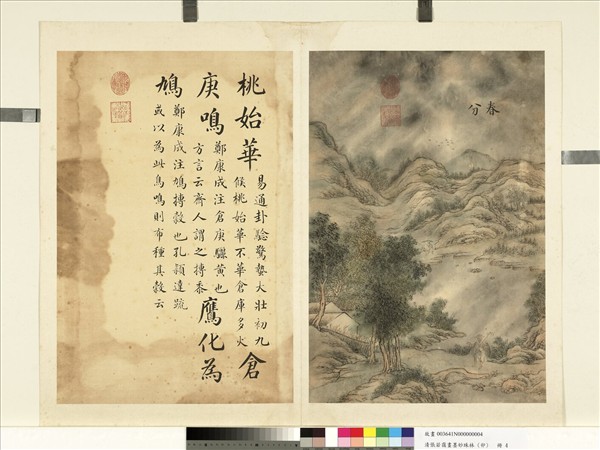 春分
桃始華 易通卦驗驚蟄大壯初九
候桃始華不華倉庫多火 倉
庚鳴 鄭康成注倉庚驪黃也
方言云齊人謂之摶黍 鷹化為
鳩 鄭康成注鳩搏穀也孔穎達疏
或以為此鳥鳴則布種其穀云
故畫 003641N000000004
清張若靄畫墨妙珠林（卯） 冊 4